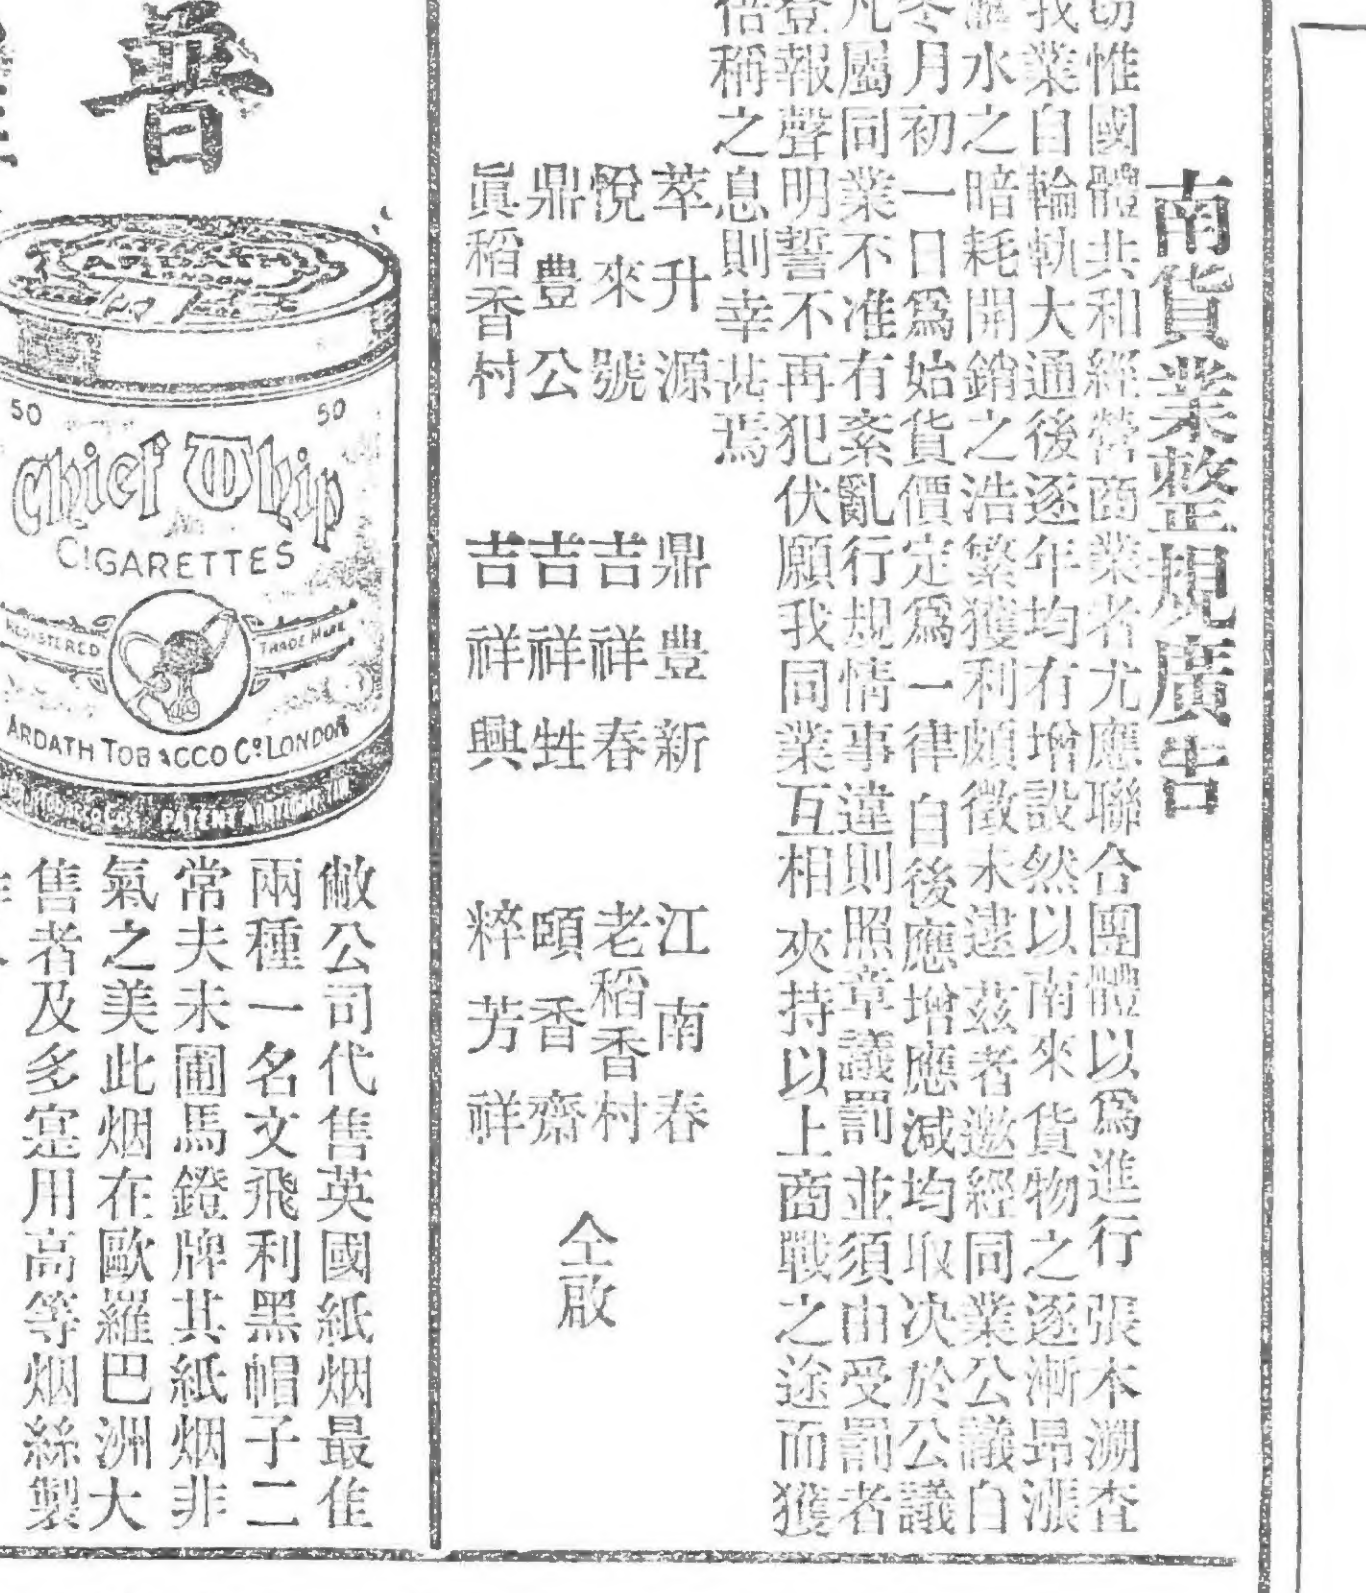 南貨業整規廣告
切惟國體共和經營商業者尤應聯合團體以爲進行張本溯查
我業自輪軌大通後逐年均有增設然以南來貨物之逐漸昂漲
滙水之暗耗開銷之浩繁獲利頗微未逮茲者邀經同業公議自
冬月初一日爲始貨價定爲一律自後應增應減均取决於公議
凡屬同業不准有紊亂行規情事違則照章議罰並須由受罰者
登報聲明誓不再犯伏願我同業互相夾持以上商戰之途而獲
倍稱之息則幸甚焉
萃升源 鼎豐新 江南春
悅來號 吉祥春 老稻香村
鼎豐公 吉祥甡 頤香齋
眞稻香村 吉祥興 粹芳祥
仝啟
普
50 50
Chief Whip
CIGARETTES
REGISTERED TRADE MARK
ARDATH TOBACCO Co. LONDON
PATENT AIRTIGHT TIN
敝公司代售英國紙烟最佳
兩種一名文飛利黑帽子二
常夫未圃馬鐙牌其紙烟非
氣之美此烟在歐羅巴洲大
售者及多寔用高等烟絲製